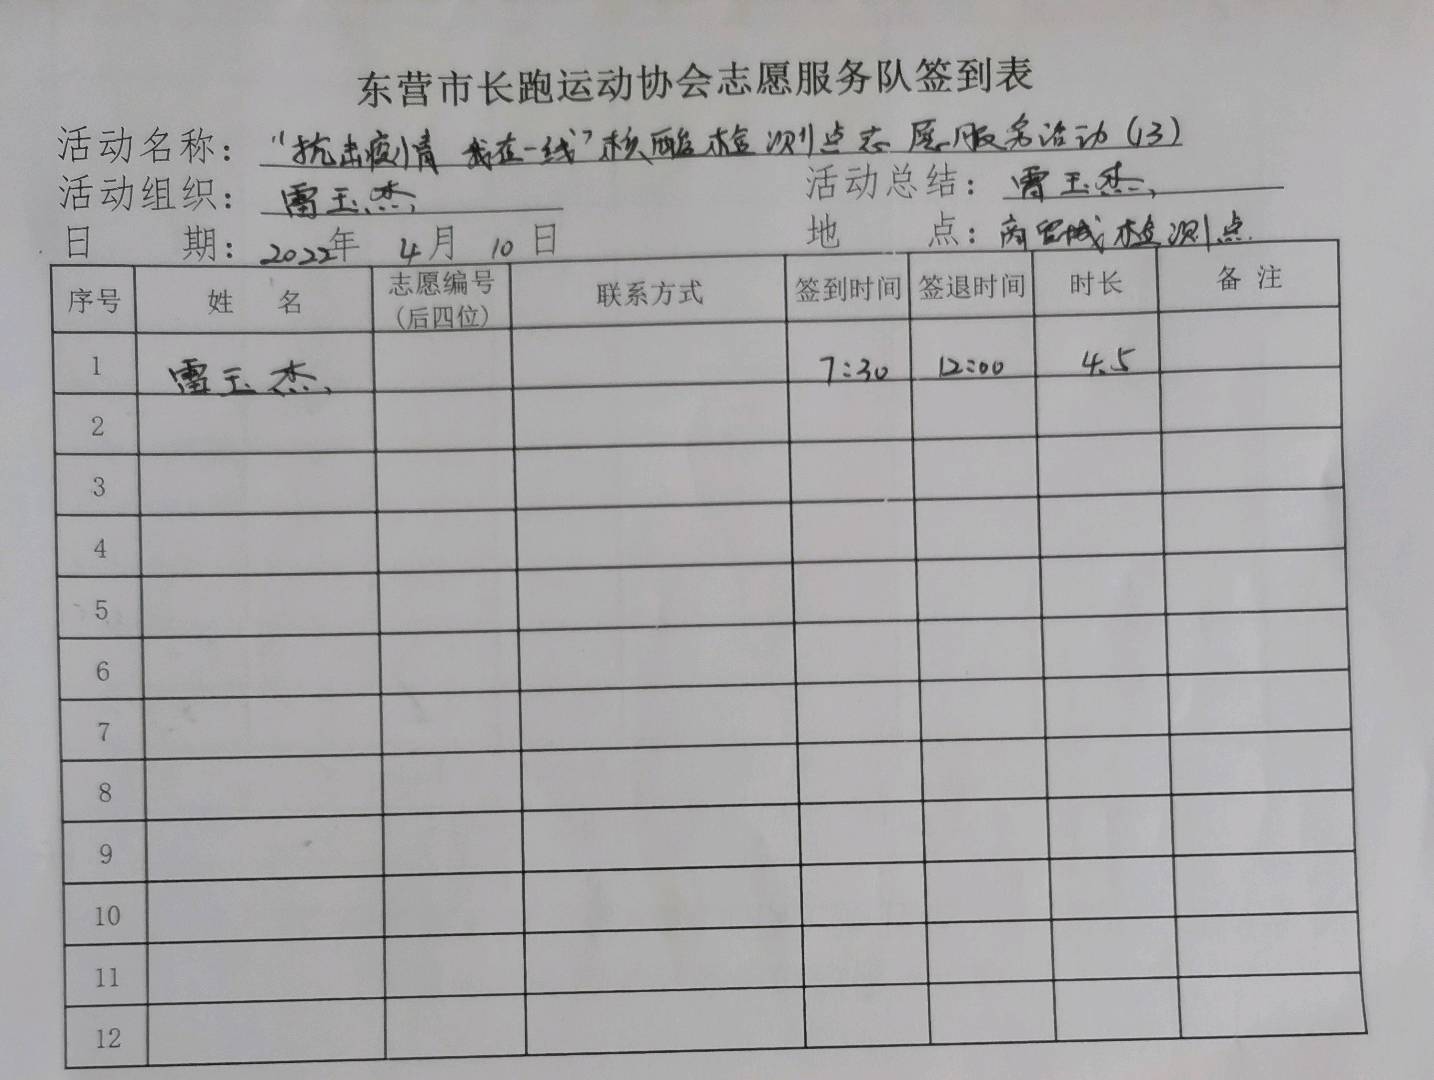 东营市长跑运动协会志愿服务队签到表
活动名称：“抗击疫情 我在一线”核酸检测点志愿服务活动（13）
活动组织：雷玉杰 活动总结：雷玉杰
日 期：2022年 4月 10日 地 点：商贸城检测点
序号 姓 名 志愿编号(后四位) 联系方式 签到时间 签退时间 时长 备 注
1 雷玉杰 7:30 12:00 4.5
2
3
4
5
6
7
8
9
10
11
12